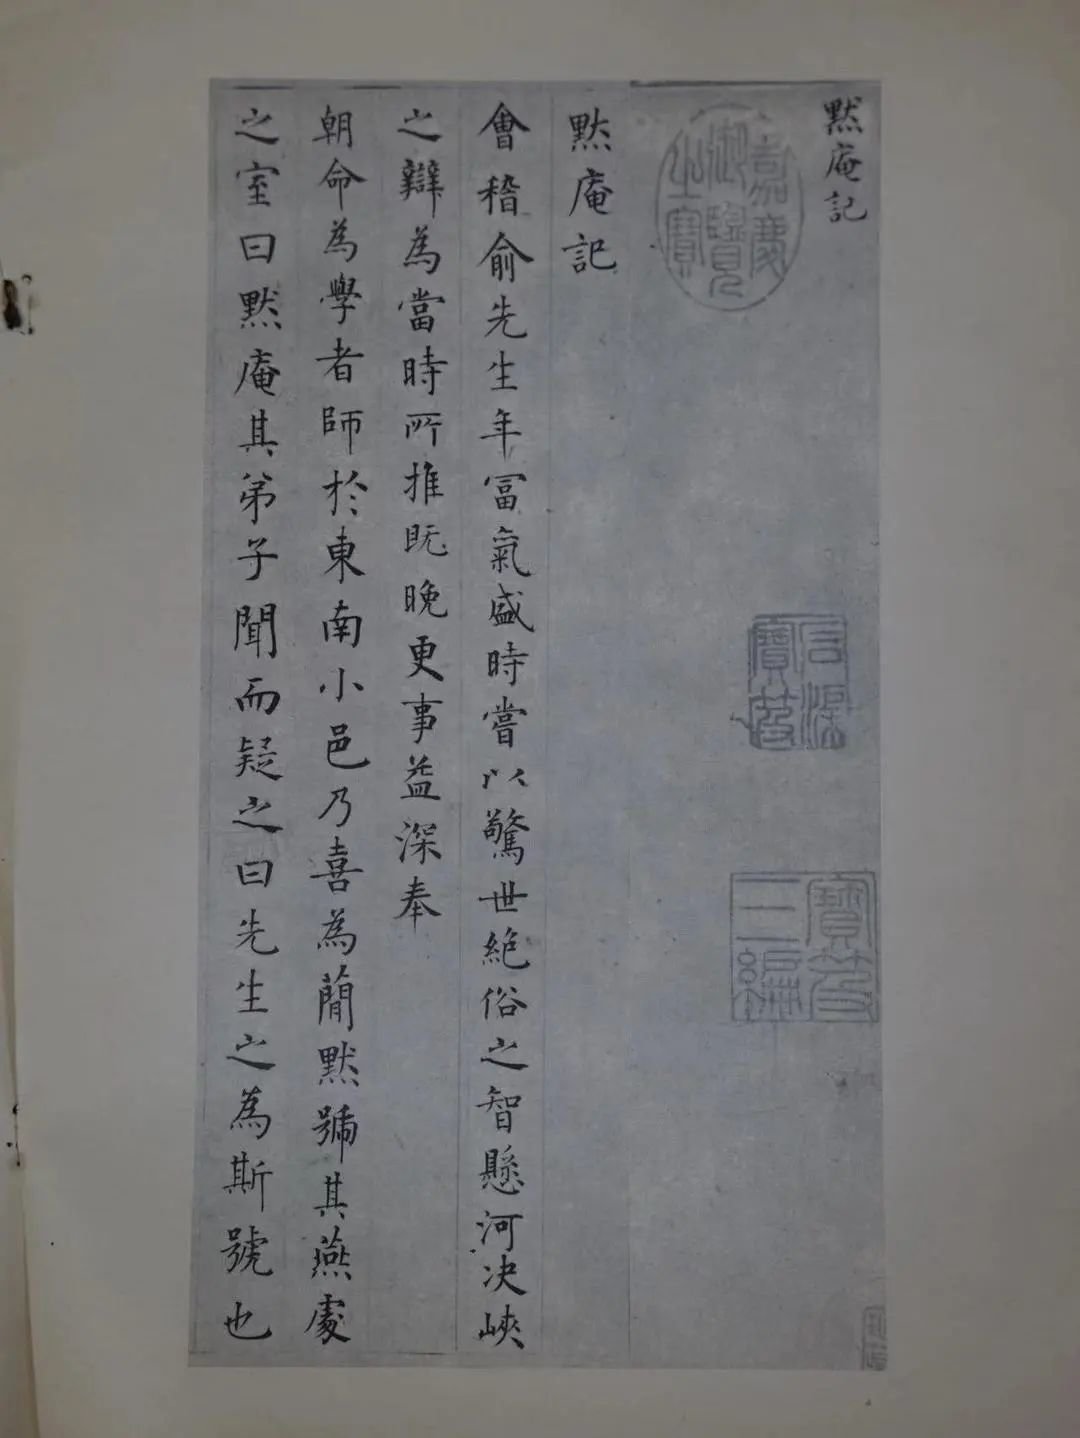 默庵記
嘉慶御覽之寶
石渠寶笈
寶笈三編
默庵記
會稽俞先生年冨氣盛時嘗以驚世絕俗之智懸河决峽
之辯為當時所推旣晚更事益深奉
朝命為學者師於東南小邑乃喜為簡默號其燕處
之室曰默庵其弟子聞而疑之曰先生之為斯號也